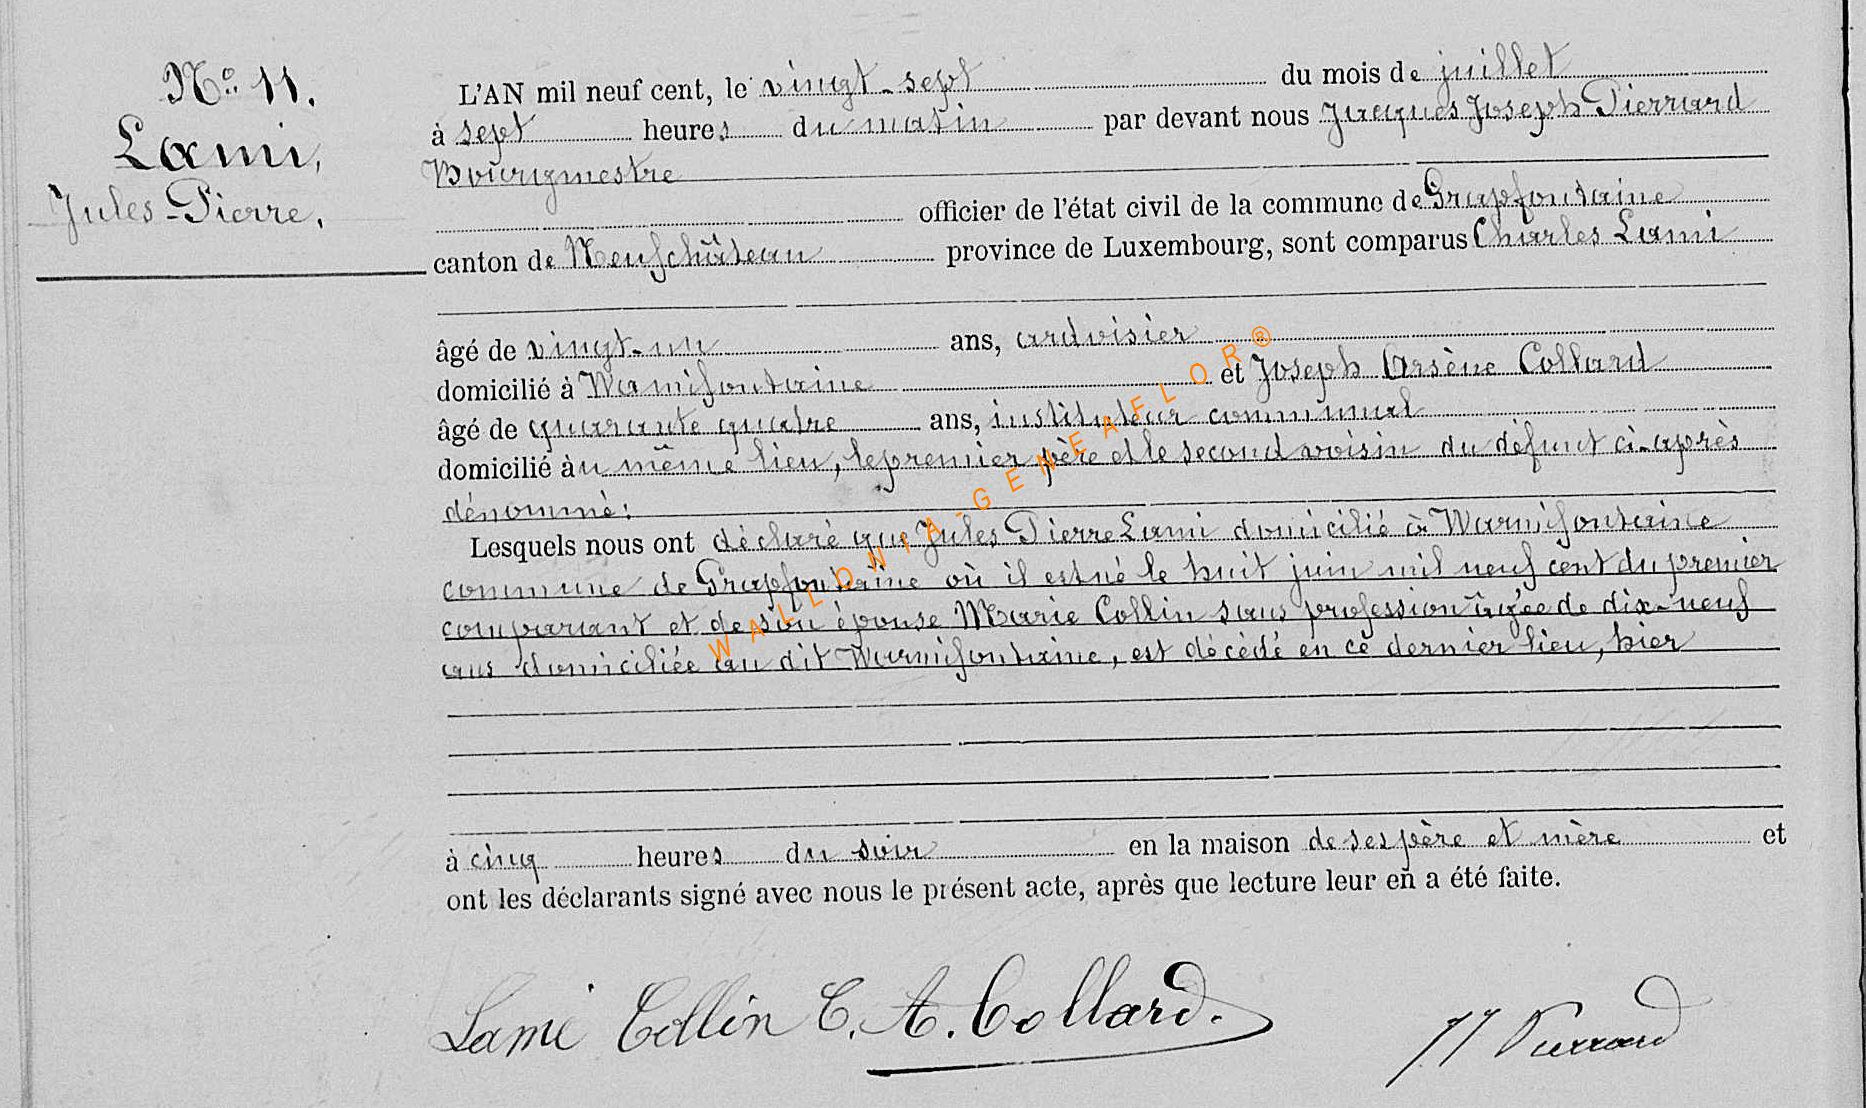 N° 11.
Lami,
Jules-Pierre,
L'AN mil neuf cent, le vingt-sept du mois de juillet
à sept heures du matin par devant nous Jacques Joseph Pierrard
Bourgmestre
officier de l'état civil de la commune de Grapfontaine
canton de Neufchâteau province de Luxembourg, sont comparus Charles Lami
âgé de vingt-un ans, ardoisier
domicilié à Warmifontaine et Joseph Arsène Collard
âgé de quarante quatre ans, instituteur communal
domicilié àu même lieu, le premier père et le second voisin du défunt ci-après
dénommé:
Lesquels nous ont déclaré que Jules Pierre Lami domicilié à Warmifontaine
commune de Grapfontaine où il est né le huit juin mil neuf cent du premier
comparant et de son épouse Marie Collin sans profession âgée de dix-neuf
ans domiciliée au dit Warmifontaine, est décédé en ce dernier lieu, hier
à cinq heures du soir en la maison de ses père et mère et
ont les déclarants signé avec nous le présent acte, après que lecture leur en a été faite.
Lami Collin C. A. Collard. JJ Pierrard
WALLONIA-GENEAFLOR®